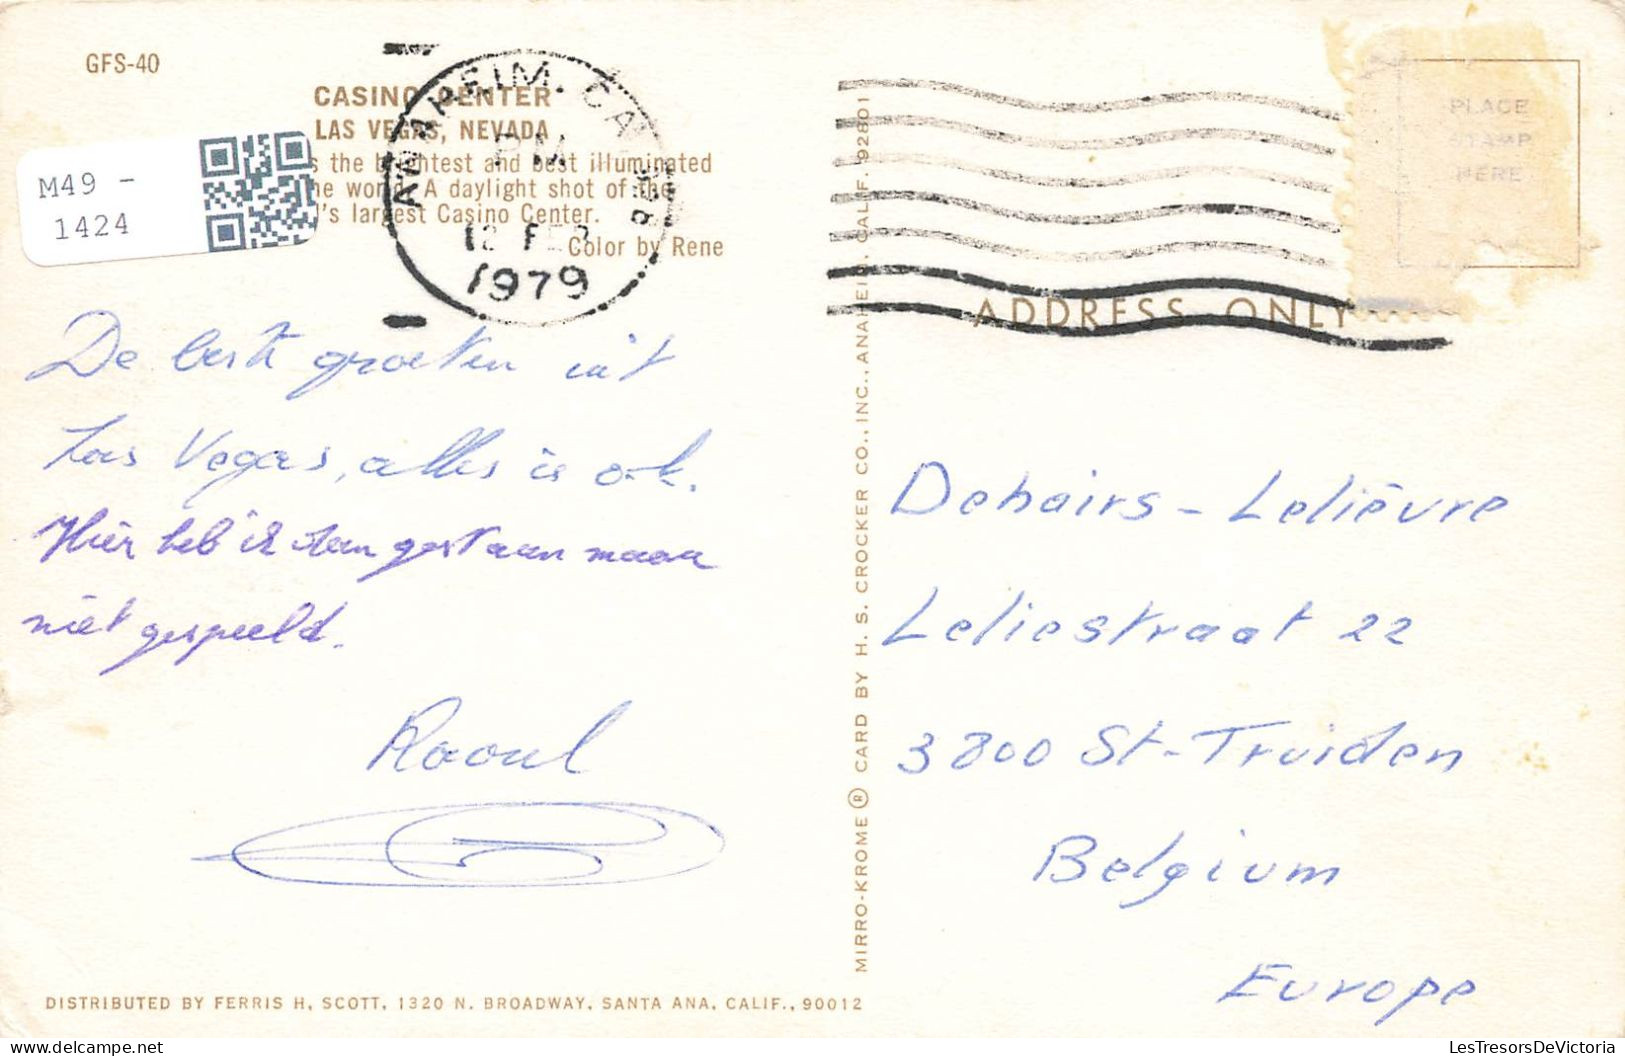 GFS-40
CASINO CENTER
LAS VEGAS, NEVADA
s the brightest and best illuminated
he world. A daylight shot of the
's largest Casino Center.
Color by Rene
M49 -
1424
ANAHEIM. CA
PM
12 FEB
1979
De beste groeten uit
Las Vegas, alles is o.k.
Hier heb ik dan gestaan maar
niet gespeeld.
Raoul
DISTRIBUTED BY FERRIS H. SCOTT, 1320 N. BROADWAY, SANTA ANA, CALIF., 90012
MIRRO-KROME ® CARD BY H. S. CROCKER CO., INC., ANAHEIM, CALIF. 92801
PLACE
STAMP
HERE
ADDRESS ONLY
Dehairs - Lelièvre
Leliestraat 22
3800 St-Truiden
Belgium
Europe
LesTresorsDeVictoria